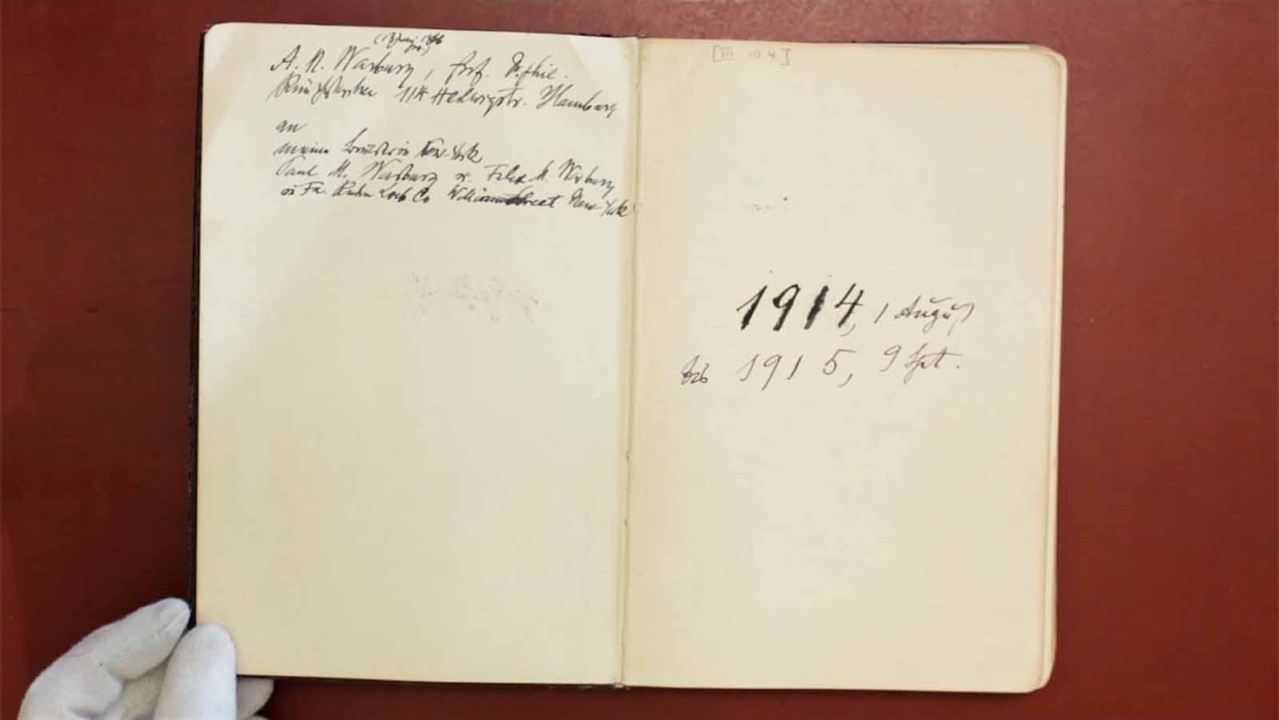 A. M. Warburg, Prof. Dr. phil.
114 Heilwigstr. Hamburg
an
meine Brüder in New-York
Paul M. Warburg u. Felix M. Warburg
Fa. Kuhn Loeb Co William Street New-York
[III 10.4]
1914, 1 August
bis 1915, 9 Spt.